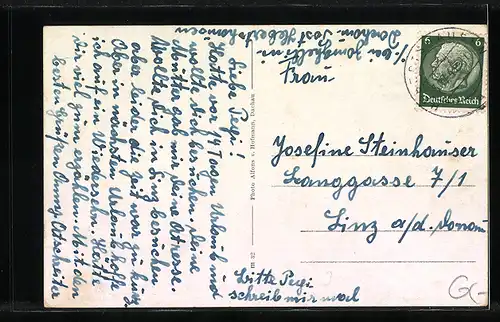 Liebe Pepi!
Hatte vor 14 Tagen Urlaub und
wollte dich besuchen. Deine
Mutter gab mir deine Adresse.
Wollte dich in Linz besuchen
aber leider die Zeit war zu kurz.
Aber im nächsten Urlaub hoffe
ich auf ein Wiedersehn. Hätte
dir viel zum erzählen. Mit den
besten Grüßen
Bitte Pepi
schreib mir mal
Photo Alfons v. Hofmann, Dachau
III 32
Dachau Post
Frau
Josefine Steinhauser
Langgasse 7/1
Linz a/d. Donau
6 6
Deutsches Reich
G-